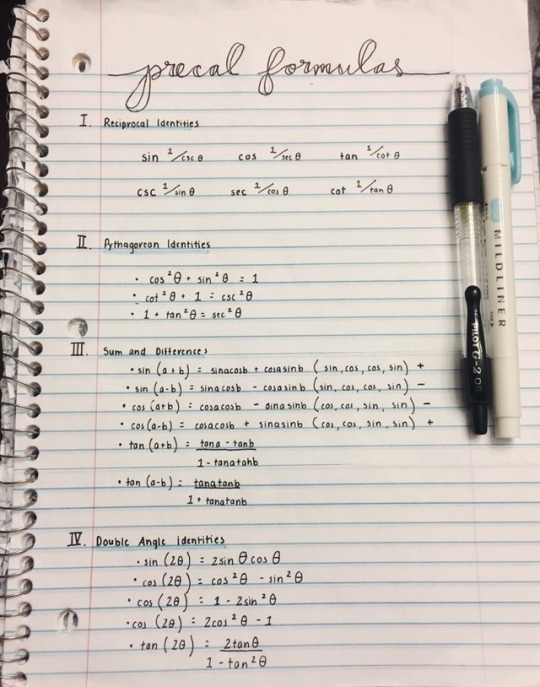 precal formulas
I. Reciprocal Identities
sin 1/csc θ cos 1/sec θ tan 1/cot θ
csc 1/sin θ sec 1/cos θ cot 1/tan θ
II. Pythagorean Identities
• cos²θ + sin²θ = 1
• cot²θ + 1 = csc²θ
• 1 + tan²θ = sec²θ
III. Sum and Differences
• sin (a+b) = sinacosb + cosasinb (sin, cos, cos, sin) +
• sin (a-b) = sinacosb - cosasinb (sin, cos, cos, sin) -
• cos (a+b) = cosacosb - sinasinb (cos, cos, sin, sin) -
• cos (a-b) = cosacosb + sinasinb (cos, cos, sin, sin) +
• tan (a+b) = tana - tanb
1 - tanatanb
• tan (a-b) = tanatanb
1 + tanatanb
IV. Double Angle Identities
• sin (2θ) = 2sin θ cos θ
• cos (2θ) = cos²θ - sin²θ
• cos (2θ) = 1 - 2sin²θ
• cos (2θ) = 2cos²θ - 1
• tan (2θ) = 2tanθ
1 - tan²θ
MILDLINER
PILOT G-2 05